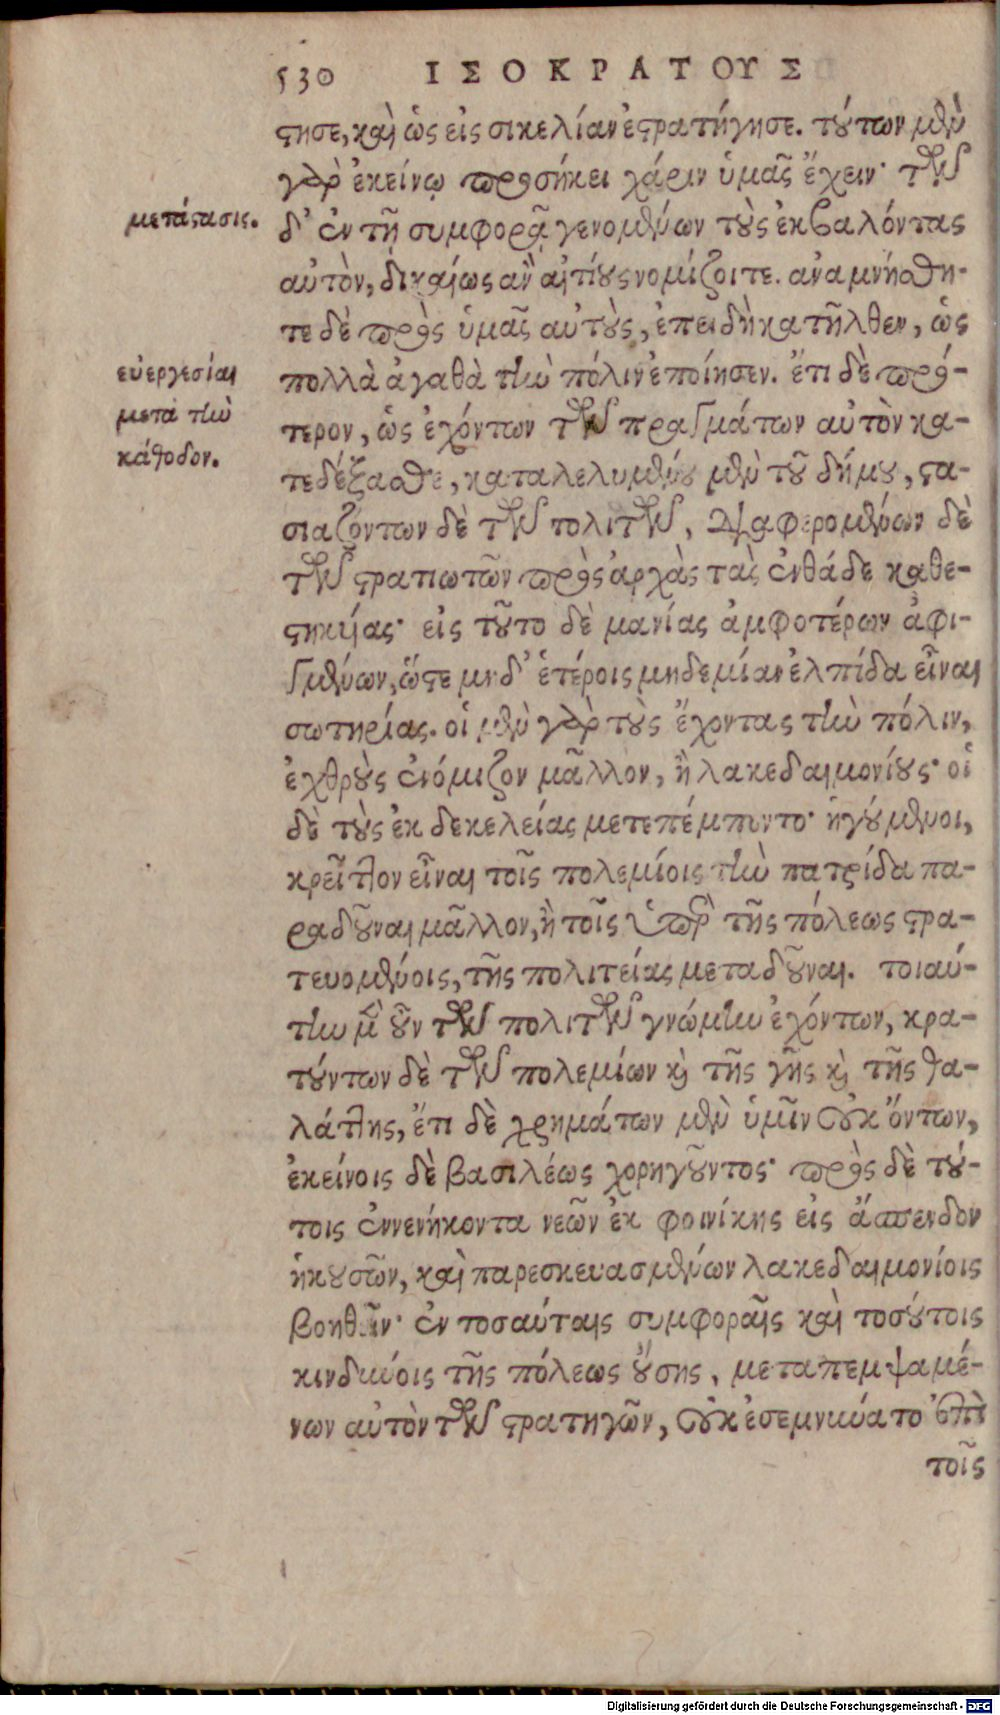 530 ΙΣΟΚΡΑΤΟΥΣ
στησε, καὶ ὡς εἰς σικελίαν ἐστρατήγησε. τούτων μὲν
γὰρ ἐκείνῳ προσήκει χάριν ὑμᾶς ἔχειν· τῶν
μετάστασις.
δ' ἐν τῇ συμφορᾷ γενομένων τοὺς ἐκβαλόντας
αὐτὸν, δικαίως ἂν αἰτίους νομίζοιτε. ἀναμνήσθη-
τε δὲ πρὸς ὑμᾶς αὐτοὺς, ἐπειδὴ κατῆλθεν, ὡς
εὐεργεσίαι
μετὰ τὴν
κάθοδον.
πολλὰ ἀγαθὰ τὴν πόλιν ἐποίησεν. ἔτι δὲ πρό-
τερον, ὡς ἐχόντων τῶν πραγμάτων αὐτὸν κα-
τεδέξασθε, καταλελυμένου μὲν τοῦ δήμου, στα-
σιαζόντων δὲ τῶν πολιτῶν, διαφερομένων δὲ
τῶν στρατιωτῶν πρὸς ἀρχὰς τὰς ἐνθάδε καθε-
στηκυίας· εἰς τοῦτο δὲ μανίας ἀμφοτέρων ἀφι-
γμένων, ὥστε μηδ' ἑτέροις μηδεμίαν ἐλπίδα εἶναι
σωτηρίας. οἱ μὲν γὰρ τοὺς ἔχοντας τὴν πόλιν,
ἐχθροὺς ἐνόμιζον μᾶλλον, ἢ λακεδαιμονίους· οἱ
δὲ τοὺς ἐκ δεκελείας μετεπέμποντο· ἡγούμενοι,
κρεῖττον εἶναι τοῖς πολεμίοις τὴν πατρίδα πα-
ραδοῦναι μᾶλλον, ἢ τοῖς ὑπὲρ τῆς πόλεως στρα-
τευομένοις, τῆς πολιτείας μεταδοῦναι. τοιαύ-
την μὲν οὖν τῶν πολιτῶν γνώμην ἐχόντων, κρα-
τούντων δὲ τῶν πολεμίων καὶ τῆς γῆς καὶ τῆς θα-
λάττης, ἔτι δὲ χρημάτων μὲν ὑμῖν οὐκ ὄντων,
ἐκείνοις δὲ βασιλέως χορηγοῦντος· πρὸς δὲ τού-
τοις ἐννενήκοντα νεῶν ἐκ φοινίκης εἰς ἄσπενδον
ἡκουσῶν, καὶ παρεσκευασμένων λακεδαιμονίοις
βοηθεῖν· ἐν τοσαύταις συμφοραῖς καὶ τοσούτοις
κινδύνοις τῆς πόλεως οὔσης, μεταπεμψαμέ-
νων αὐτὸν τῶν στρατηγῶν, οὐκ ἐσεμνύνατο ἐπὶ
τοῖς
Digitalisierung gefördert durch die Deutsche Forschungsgemeinschaft - DFG